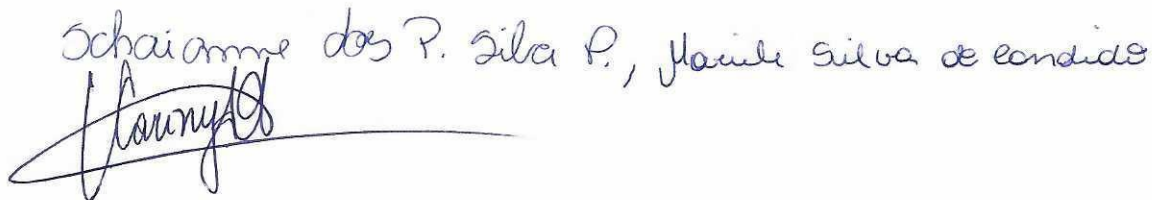 Schaianne dos P. Silva P., Marile Silva de Candido